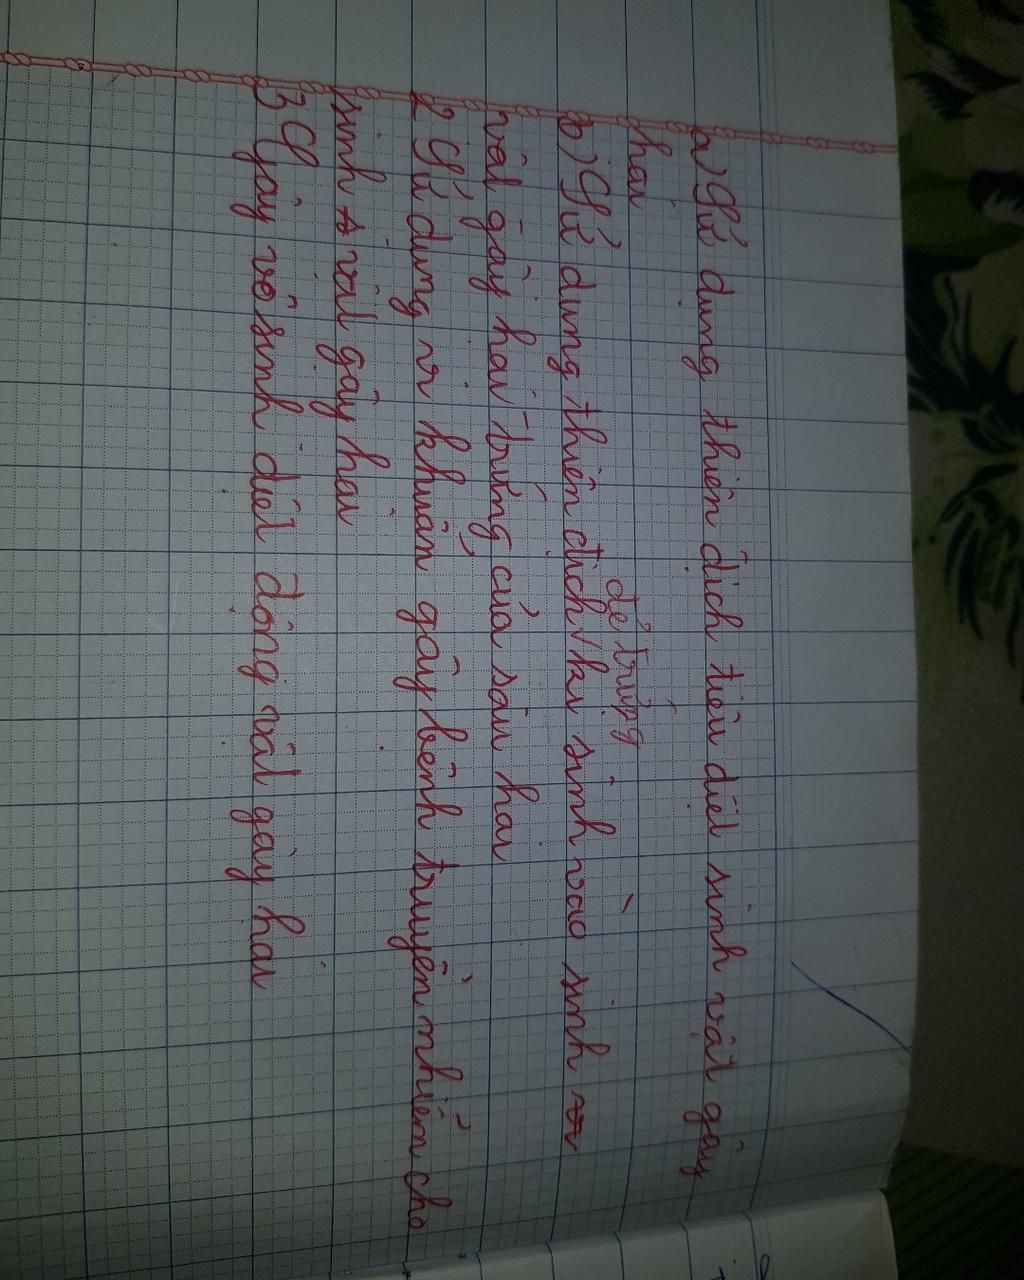 a) Sử dụng thiên địch tiêu diệt sinh vật gây
hại
đẻ trứng
b) Sử dụng thiên địch √ kí sinh vào sinh
vật gây hại trứng của sâu hại
2 Sử dụng vi khuẩn gây bệnh truyền nhiễm cho
sinh vật gây hại
3 Gây vô sinh diệt động vật gây hại